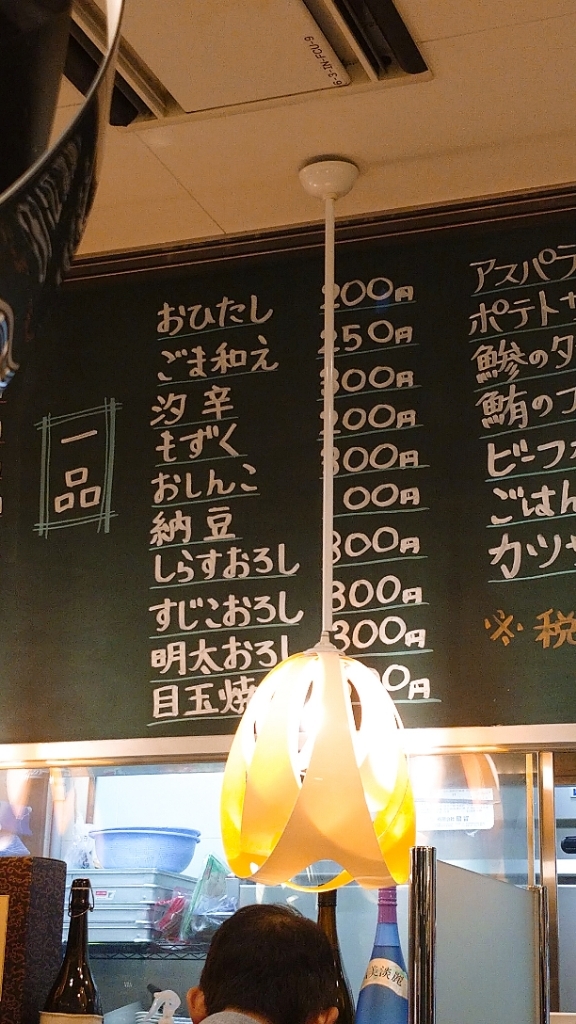 6-3-IN-FCU-9
一品
おひたし 200円
ごま和え 250円
汐辛 300円
もずく 200円
おしんこ 300円
納豆 00円
しらすおろし 300円
すじこおろし 300円
明太おろし 300円
目玉焼 00円
アスパラ
ポテトサ
鯵のタ
鮪のフ
ビーフ
ごはん
カツ
※税
美淡麗